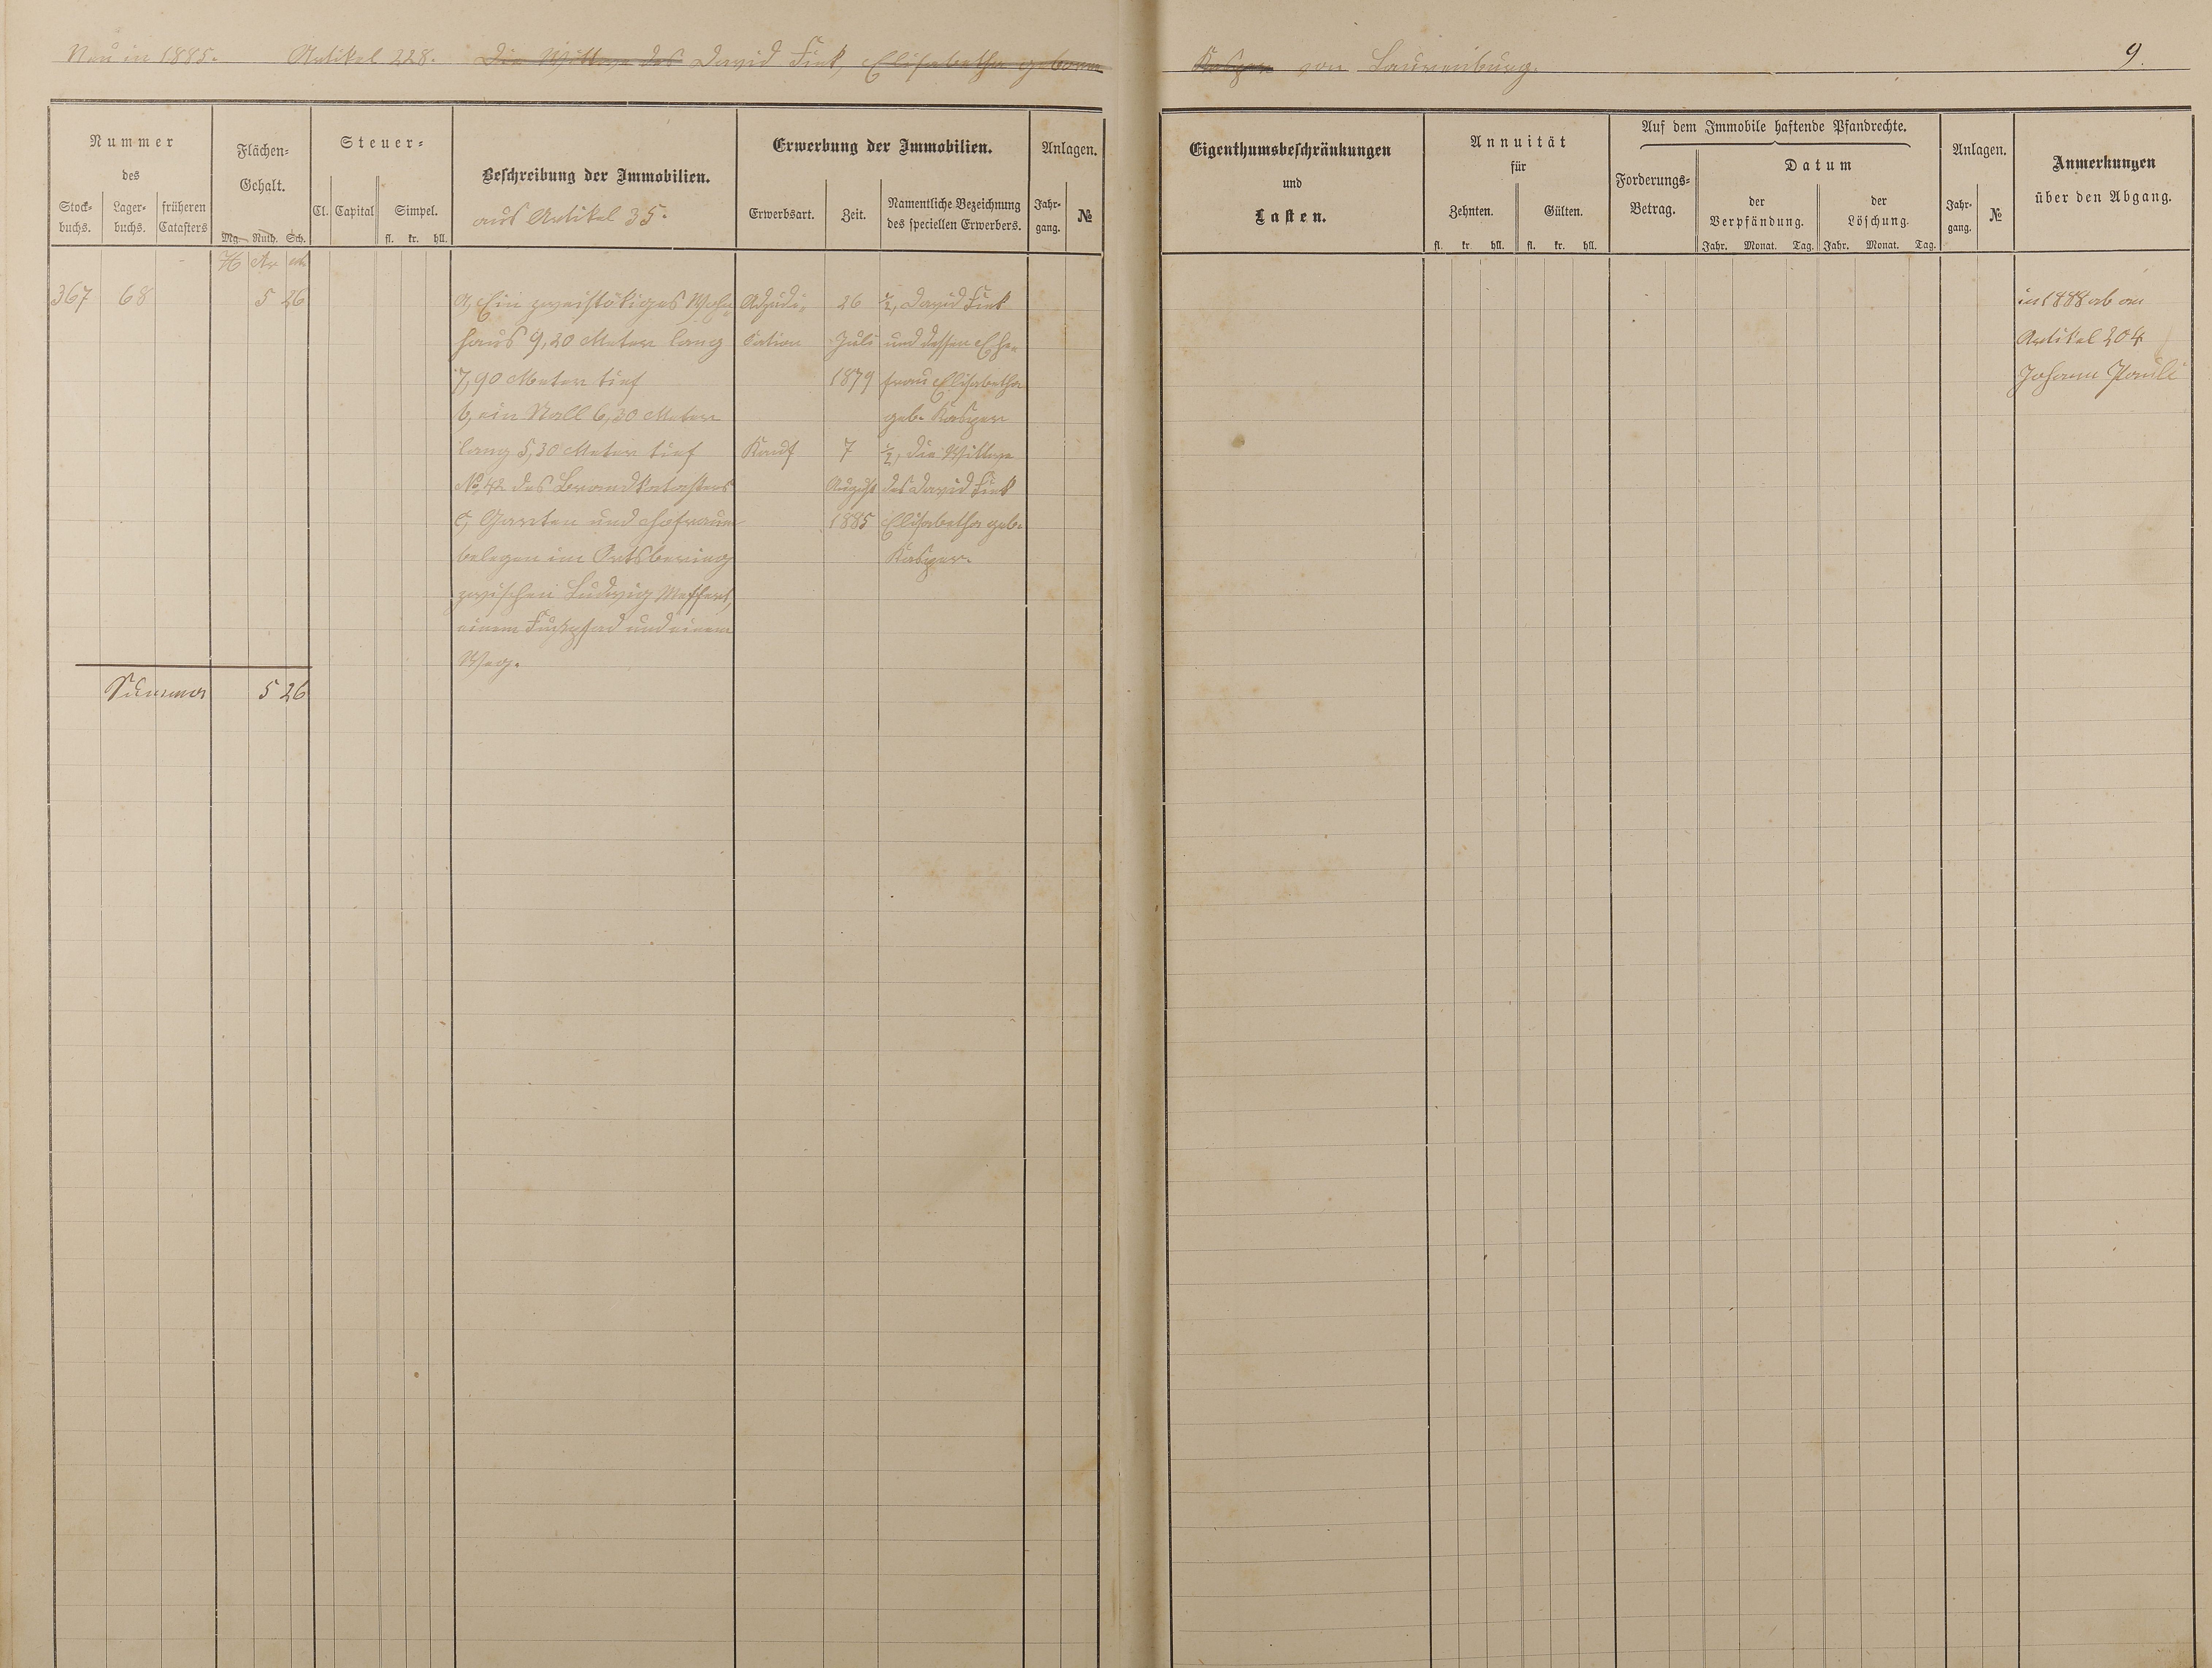 Neu in 1885. Artikel 228. Die Wittwe des David Fink, Elisabetha geborne Kasper von Laurenburg. 9.
Nummer
des
Stock-
buchs.
Lager-
buchs.
früheren
Catasters
Flächen-
Gehalt.
Mg. Ruth. Sch.
Steuer-
Cl. Capital Simpel.
fl. kr. hll.
Beschreibung der Immobilien.
aus Artikel 35.
Erwerbung der Immobilien.
Erwerbsart. Zeit.
Namentliche Bezeichnung
des speciellen Erwerbers.
Anlagen.
Jahr-
gang.
№
Eigenthumsbeschränkungen
und
Lasten.
Annuität
für
Zehnten. Gülten.
fl. kr. hll. fl. kr. hll.
Auf dem Immobile haftende Pfandrechte.
Forderungs-
Betrag.
Datum
der
Verpfändung.
der
Löschung.
Jahr. Monat. Tag. Jahr. Monat. Tag.
Anlagen.
Jahr-
gang.
№
Anmerkungen
über den Abgang.
H Ar
367 68 5 26
a, Ein zweistökiges Wohn-
haus 9,20 Meter lang
7,90 Meter tief
b, ein Stall 6,30 Meter
lang 5,30 Meter tief
No 42 des Brandkatasters
c, Garten und Hofraum
belegen im Ortsbering
zwischen Ludwig Meffert,
einem Fußpfad und einem
Weg.
Adjudi-
cation
26
Juli
1879
½, David Fink
und dessen Ehe-
frau Elisabetha
geb. Kasper
Kauf
7
August
1885
½, die Wittwe
des David Fink
Elisabetha geb.
Kasper.
in 1888 ab an
Artikel 204
Johann Pauli
Summa 5 26